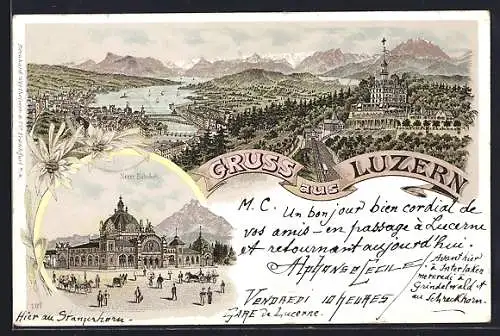 GRUSS aus LUZERN
Neuer Bahnhof.
M. C. Un bonjour bien cordial de
vos amis – en passage à Lucerne
et retournant aujourd'hui.
Alphonse Cecile
Vendredi 10 heures
Gare de Lucerne.
Avant hier
à Interlaken
mercredi à
Grindelwald et
au Schreckhorn.
Hier au Stanzerhorn.